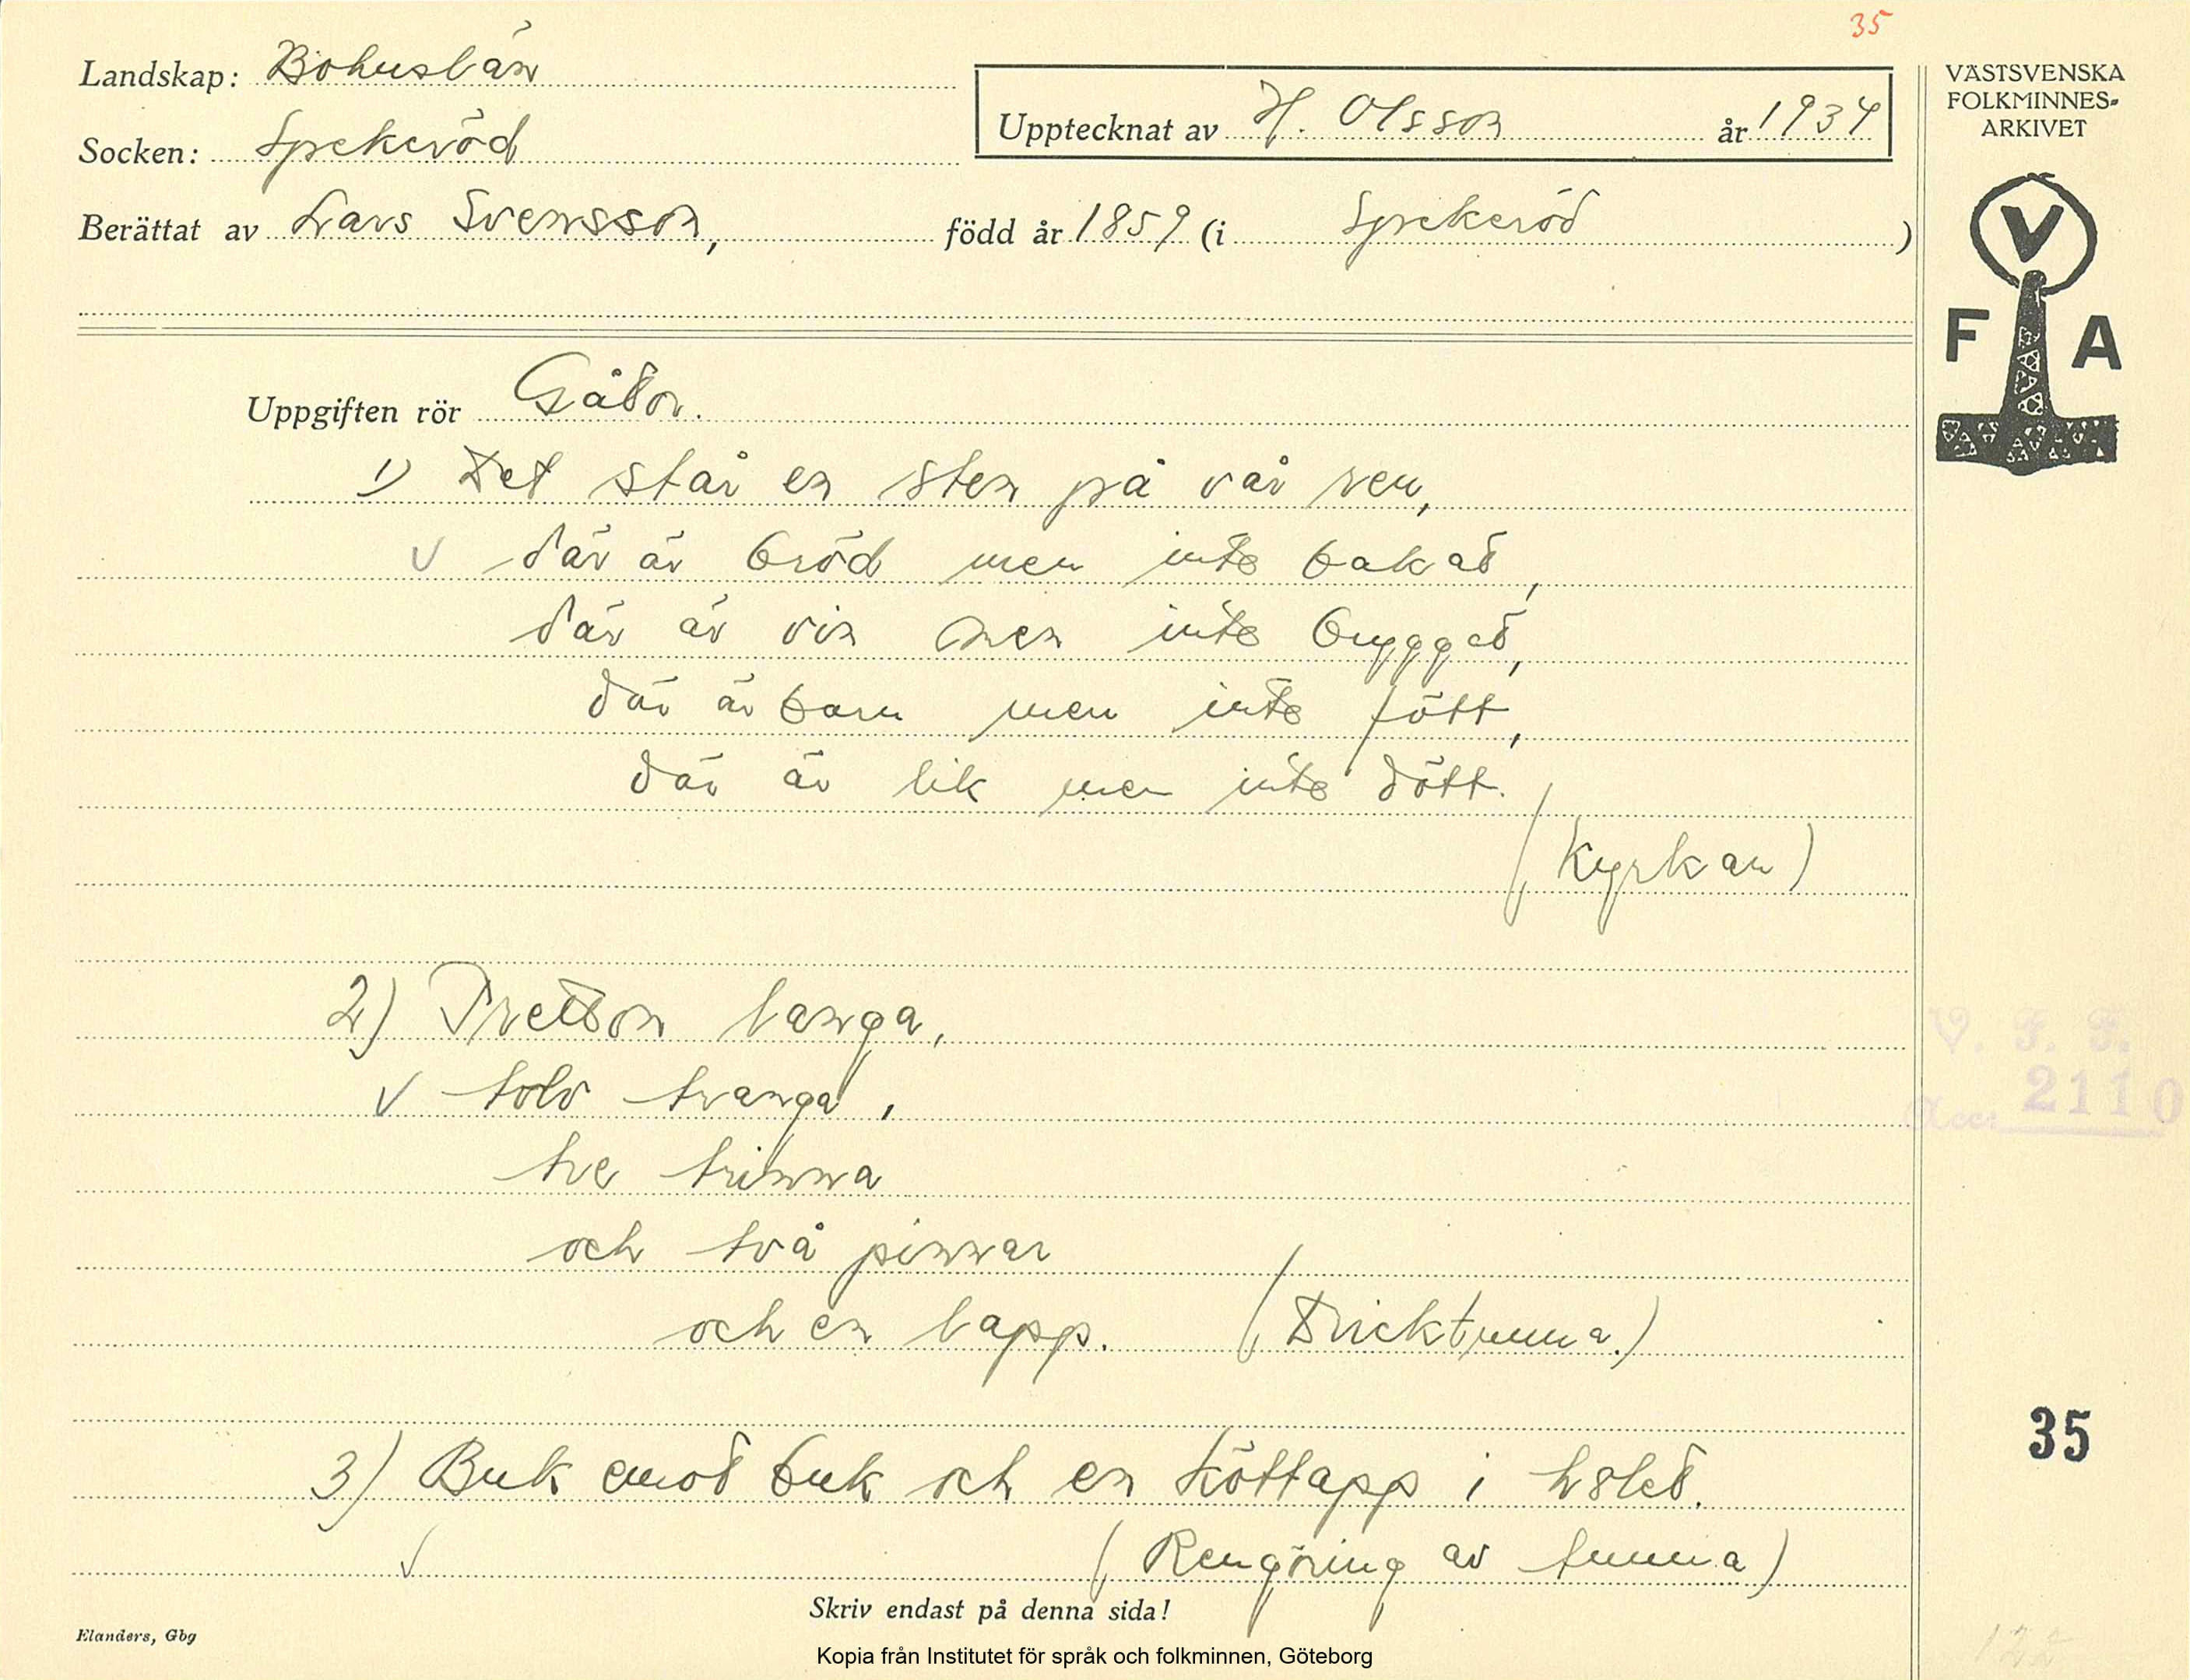 35
Landskap: Bohuslän
Socken: Spekeröd
Upptecknat av H. Olsson år 1934
Berättat av Lars Svensson, född år 1859 (i Spekeröd)
VÄSTSVENSKA
FOLKMINNES-
ARKIVET
V
F A
Uppgiften rör Gåtor.
1) Det står en sten på vår ren,
V där är bröd men inte bakat,
där är vin men inte bryggat,
där är barn men inte fött,
där är lik men inte dött.
(Kyrkan)
2) Tretton langa,
V tolv tranga,
tre trinna
och två pinnar
och en lapp. (Dricktunna.)
V. F. F.
Acc: 2110
35
3) Buk emot buk och en köttapp i hålet.
V (Rengöring av tunna)
Skriv endast på denna sida!
Elanders, Gbg
Kopia från Institutet för språk och folkminnen, Göteborg